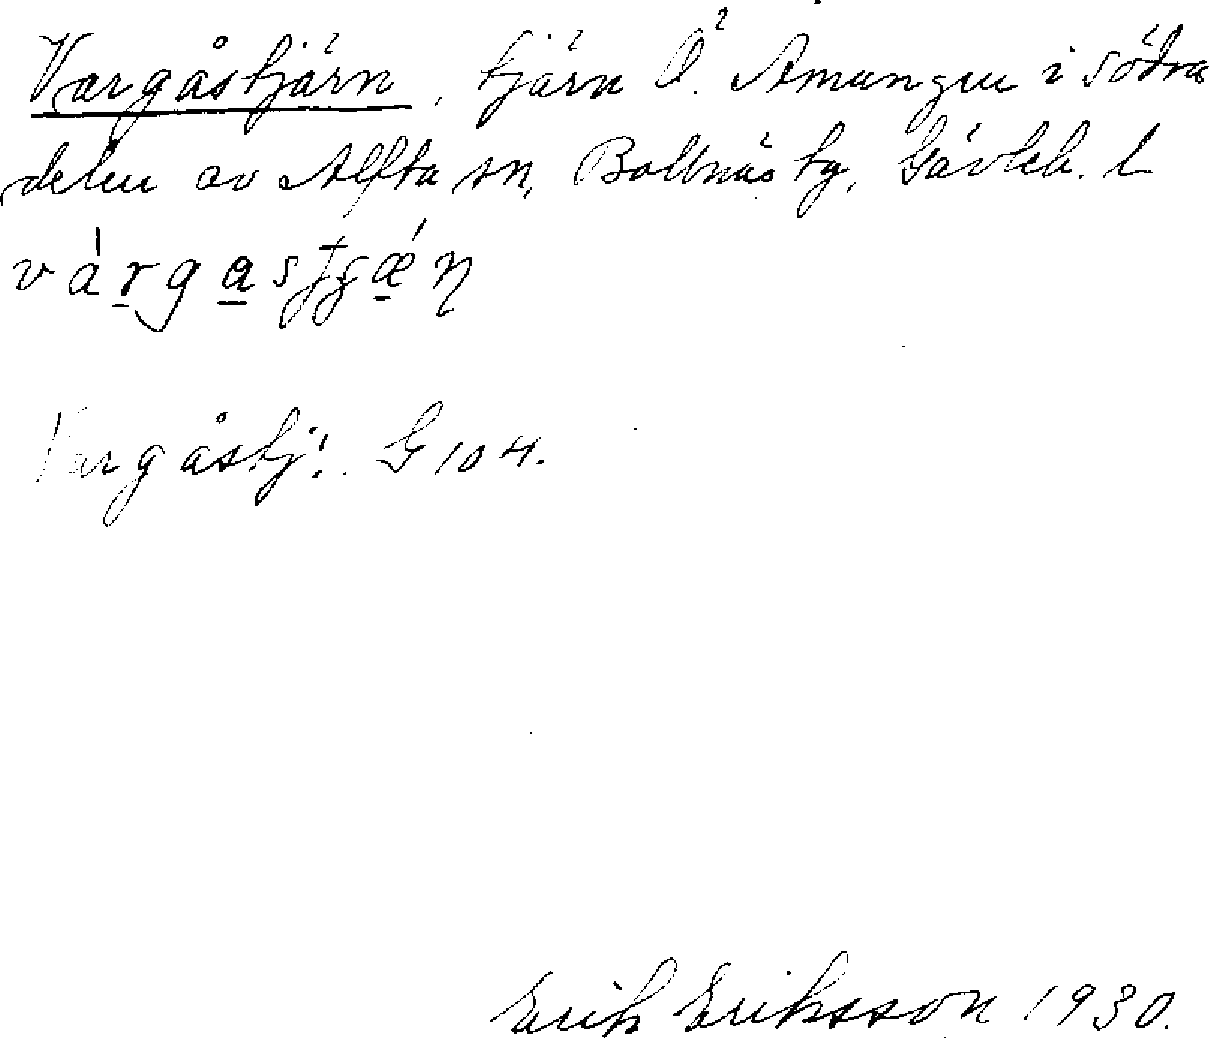 Vargåstjärn, tjärn Ö. Amungen i södra
delen av Alfta sn, Bollnäs tg, Gävleb. l
Vargåstj. G 104.
Erik Eriksson 1930.